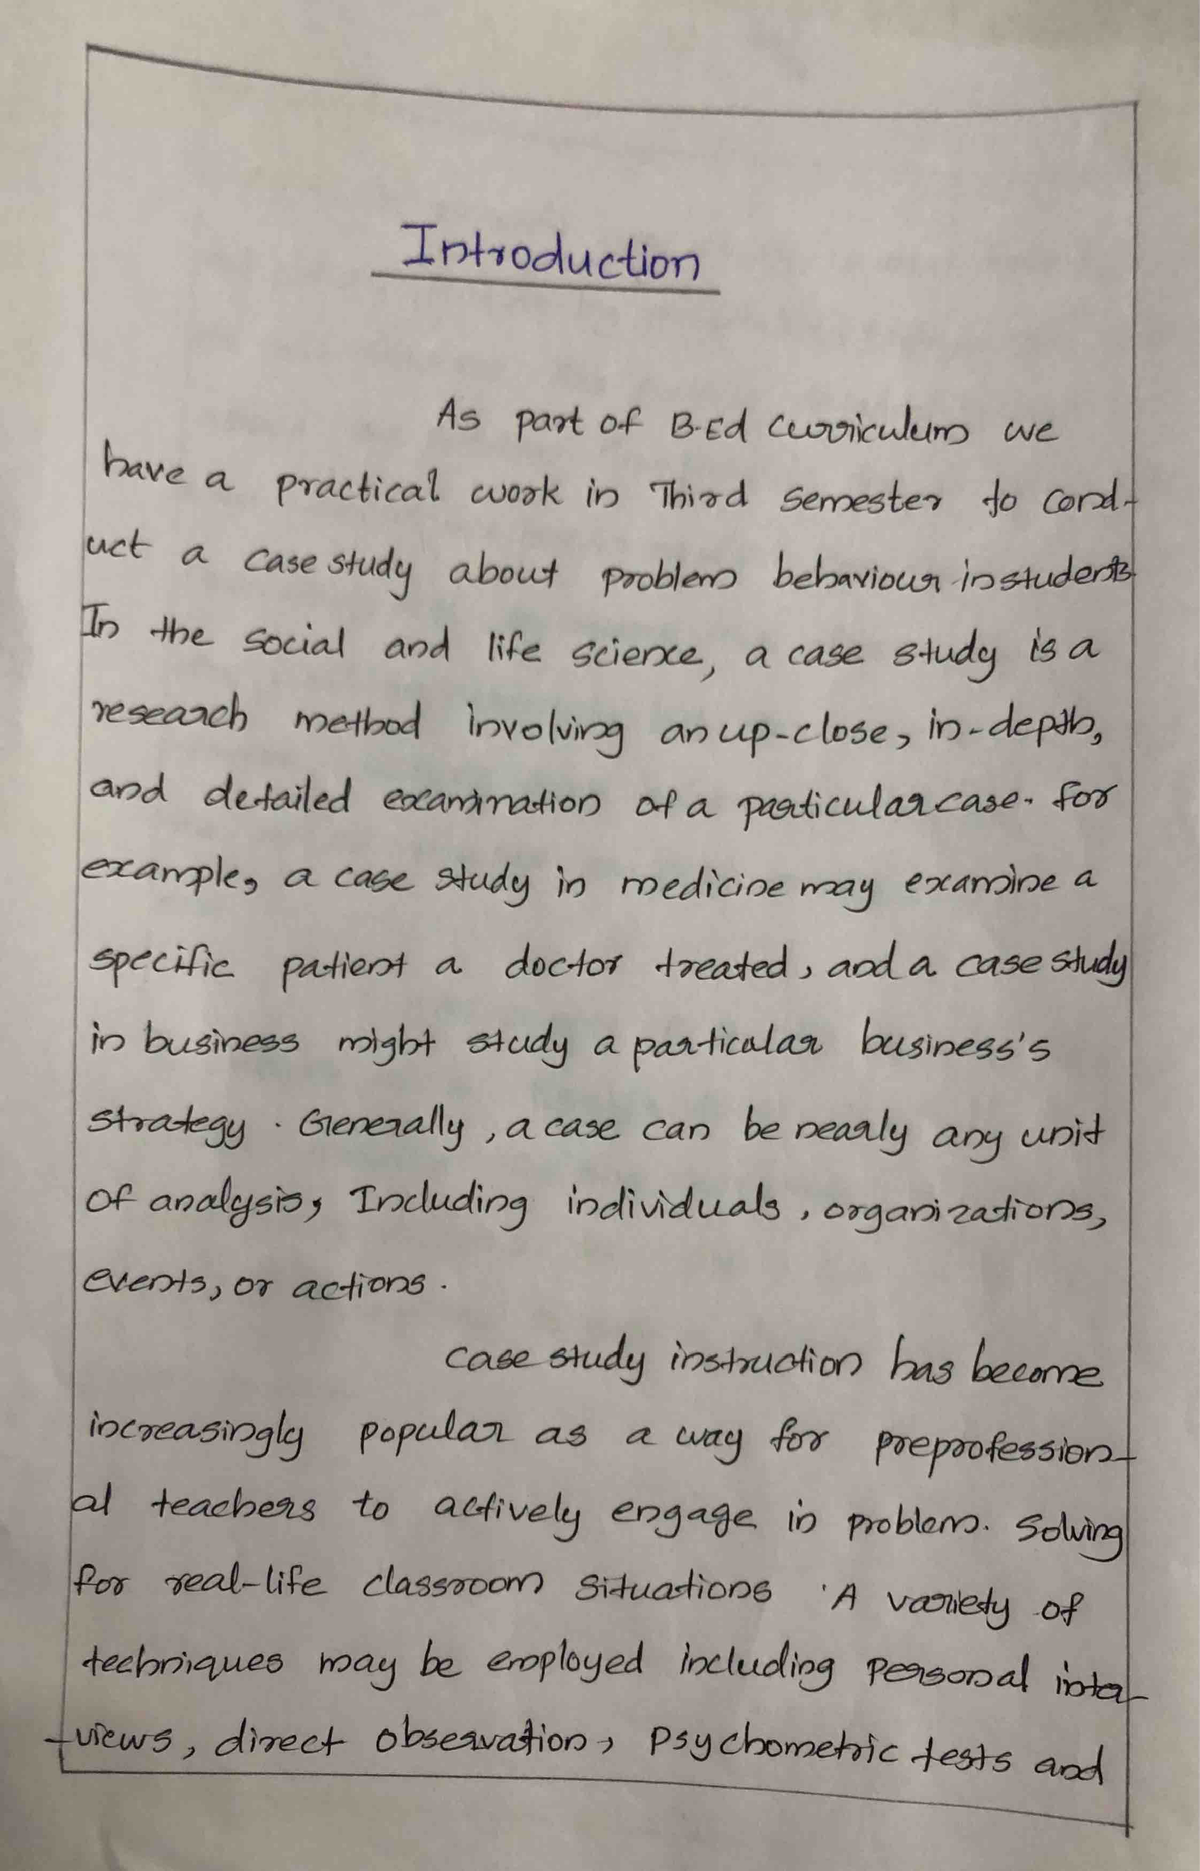 Introduction
As part of B.Ed curriculum we
have a practical work in Third semester to cond-
uct a case study about problem behaviour in students
In the social and life science, a case study is a
research method involving an up-close, in-depth,
and detailed examination of a particular case. for
example, a case study in medicine may examine a
specific patient a doctor treated, and a case study
in business might study a particular business's
strategy. Generally, a case can be nearly any unit
of analysis, Including individuals, organizations,
events, or actions.
Case study instruction has become
increasingly popular as a way for preprofession-
al teachers to actively engage in problem. Solving
for real-life classroom situations. A variety of
techniques may be employed including personal inter-
-views, direct observation, psychometric tests and